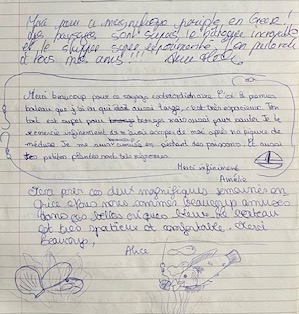 Merci pour ce magnifique périple en Grèce !
Les paysages sont le bateau incroyable
et le skipper J'en parlerai
à tous mes amis !!!
Merci beaucoup pour ce voyage extraordinaire. C'est le premier
bateau que j'ai vu qui était aussi large, c'est très spacieux. Ton
toit est super pour bronzer mais aussi pour sauter. Je te
remercie infiniment de m'avoir occupé de moi après ma piqûre de
méduse. Je me suis amusée en pêchant des poissons. Et aussi
tes petites plantes
Merci infiniment
Amélie
Merci pour ces deux magnifiques semaines en
Grèce. Nous nous sommes beaucoup amusées
dans ces belles criques bleues. Le bateau
est très spatieux et confortable. Merci
Beaucoup,
Alice